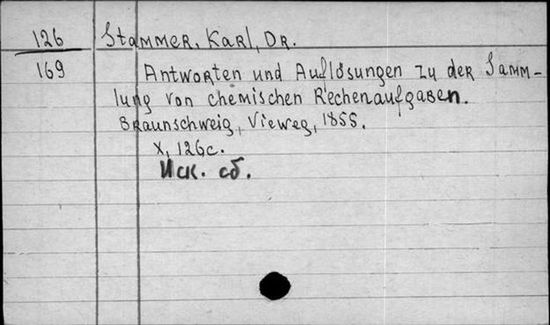 126 Stammer, Karl, Dr.
169 Antworten und Auflösungen zu der Samm-
lung von chemischen Rechenaufgaben.
Braunschweig, Vieweg, 1855.
X, 126 c.
Иск. сб.